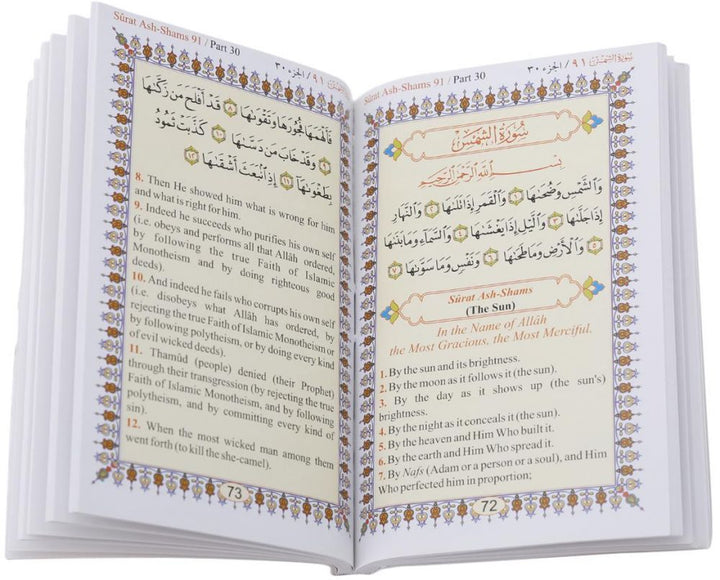 Sûrat Ash-Shams 91 / Part 30 سُورَةُ الشَّمْسِ ٩١ / الجزء ٣٠
سُورَةُ الشَّمْسِ
بِسْمِ اللَّهِ الرَّحْمَٰنِ الرَّحِيمِ
وَٱلشَّمْسِ وَضُحَىٰهَا ١ وَٱلْقَمَرِ إِذَا تَلَىٰهَا ٢ وَٱلنَّهَارِ
إِذَا جَلَّىٰهَا ٣ وَٱلَّيْلِ إِذَا يَغْشَىٰهَا ٤ وَٱلسَّمَآءِ وَمَا بَنَىٰهَا
٥ وَٱلْأَرْضِ وَمَا طَحَىٰهَا ٦ وَنَفْسٍ وَمَا سَوَّىٰهَا ٧
Sûrat Ash-Shams
(The Sun)
In the Name of Allâh
the Most Gracious, the Most Merciful.
1. By the sun and its brightness.
2. By the moon as it follows it (the sun).
3. By the day as it shows up (the sun's)
brightness.
4. By the night as it conceals it (the sun).
5. By the heaven and Him Who built it.
6. By the earth and Him Who spread it.
7. By Nafs (Adam or a person or a soul), and Him
Who perfected him in proportion;
72
Sûrat Ash-Shams 91 / Part 30 ٩١ / الجزء ٣٠
فَأَلْهَمَهَا فُجُورَهَا وَتَقْوَىٰهَا ٨ قَدْ أَفْلَحَ مَن زَكَّىٰهَا
٩ وَقَدْ خَابَ مَن دَسَّىٰهَا ١٠ كَذَّبَتْ ثَمُودُ
بِطَغْوَىٰهَآ ١١ إِذِ ٱنۢبَعَثَ أَشْقَىٰهَا ١٢
8. Then He showed him what is wrong for him
and what is right for him.
9. Indeed he succeeds who purifies his own self
(i.e. obeys and performs all that Allâh ordered,
by following the true Faith of Islamic
Monotheism and by doing righteous good
deeds).
10. And indeed he fails who corrupts his own self
(i.e. disobeys what Allâh has ordered, by
rejecting the true Faith of Islamic Monotheism or
by following polytheism, or by doing every kind
of evil wicked deeds).
11. Thamûd (people) denied (their Prophet)
through their transgression (by rejecting the true
Faith of Islamic Monotheism, and by following
polytheism, and by committing every kind of
sin).
12. When the most wicked man among them
went forth (to kill the she-camel).
73